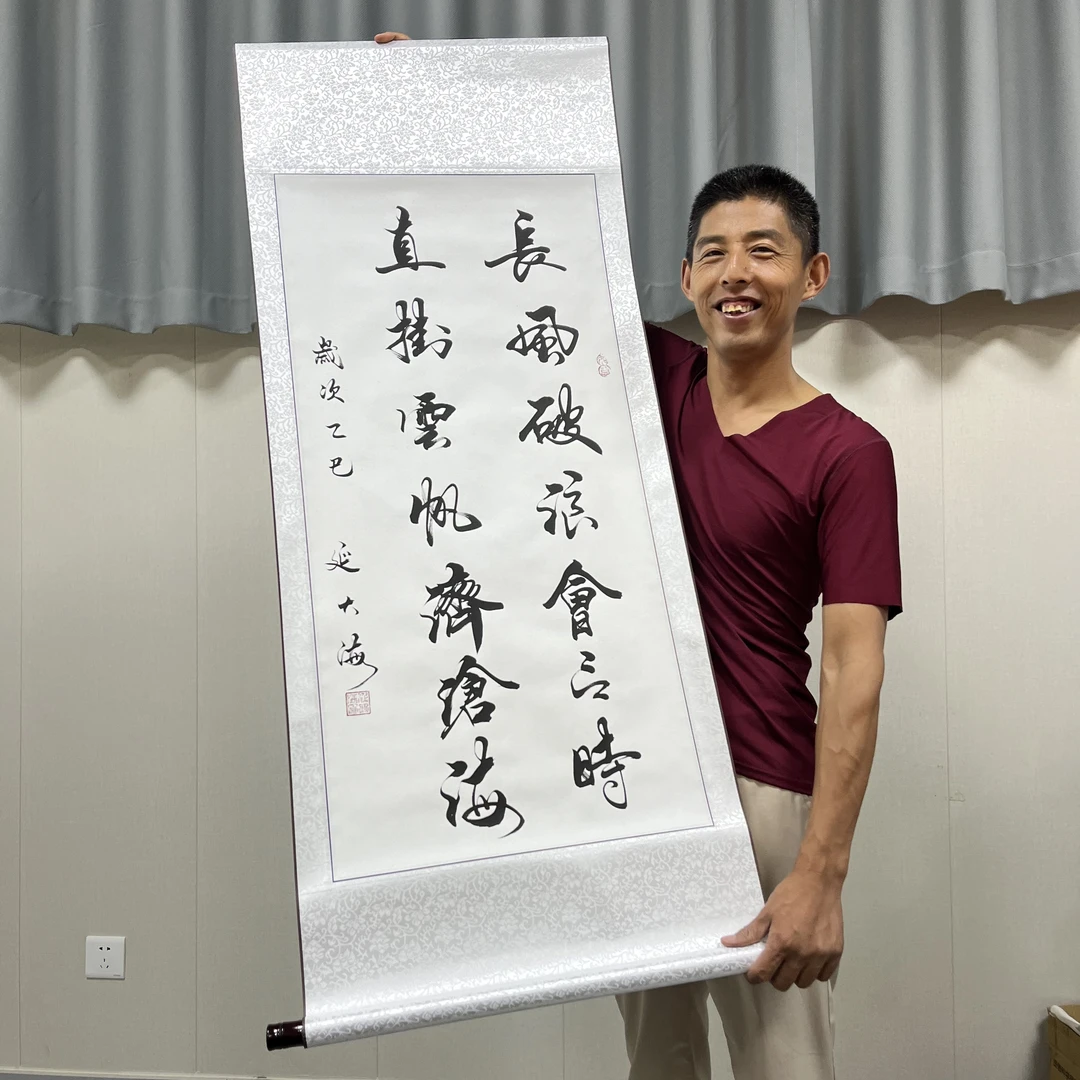 長風破浪會有時
直掛雲帆濟滄海
歲次乙巳 延大海